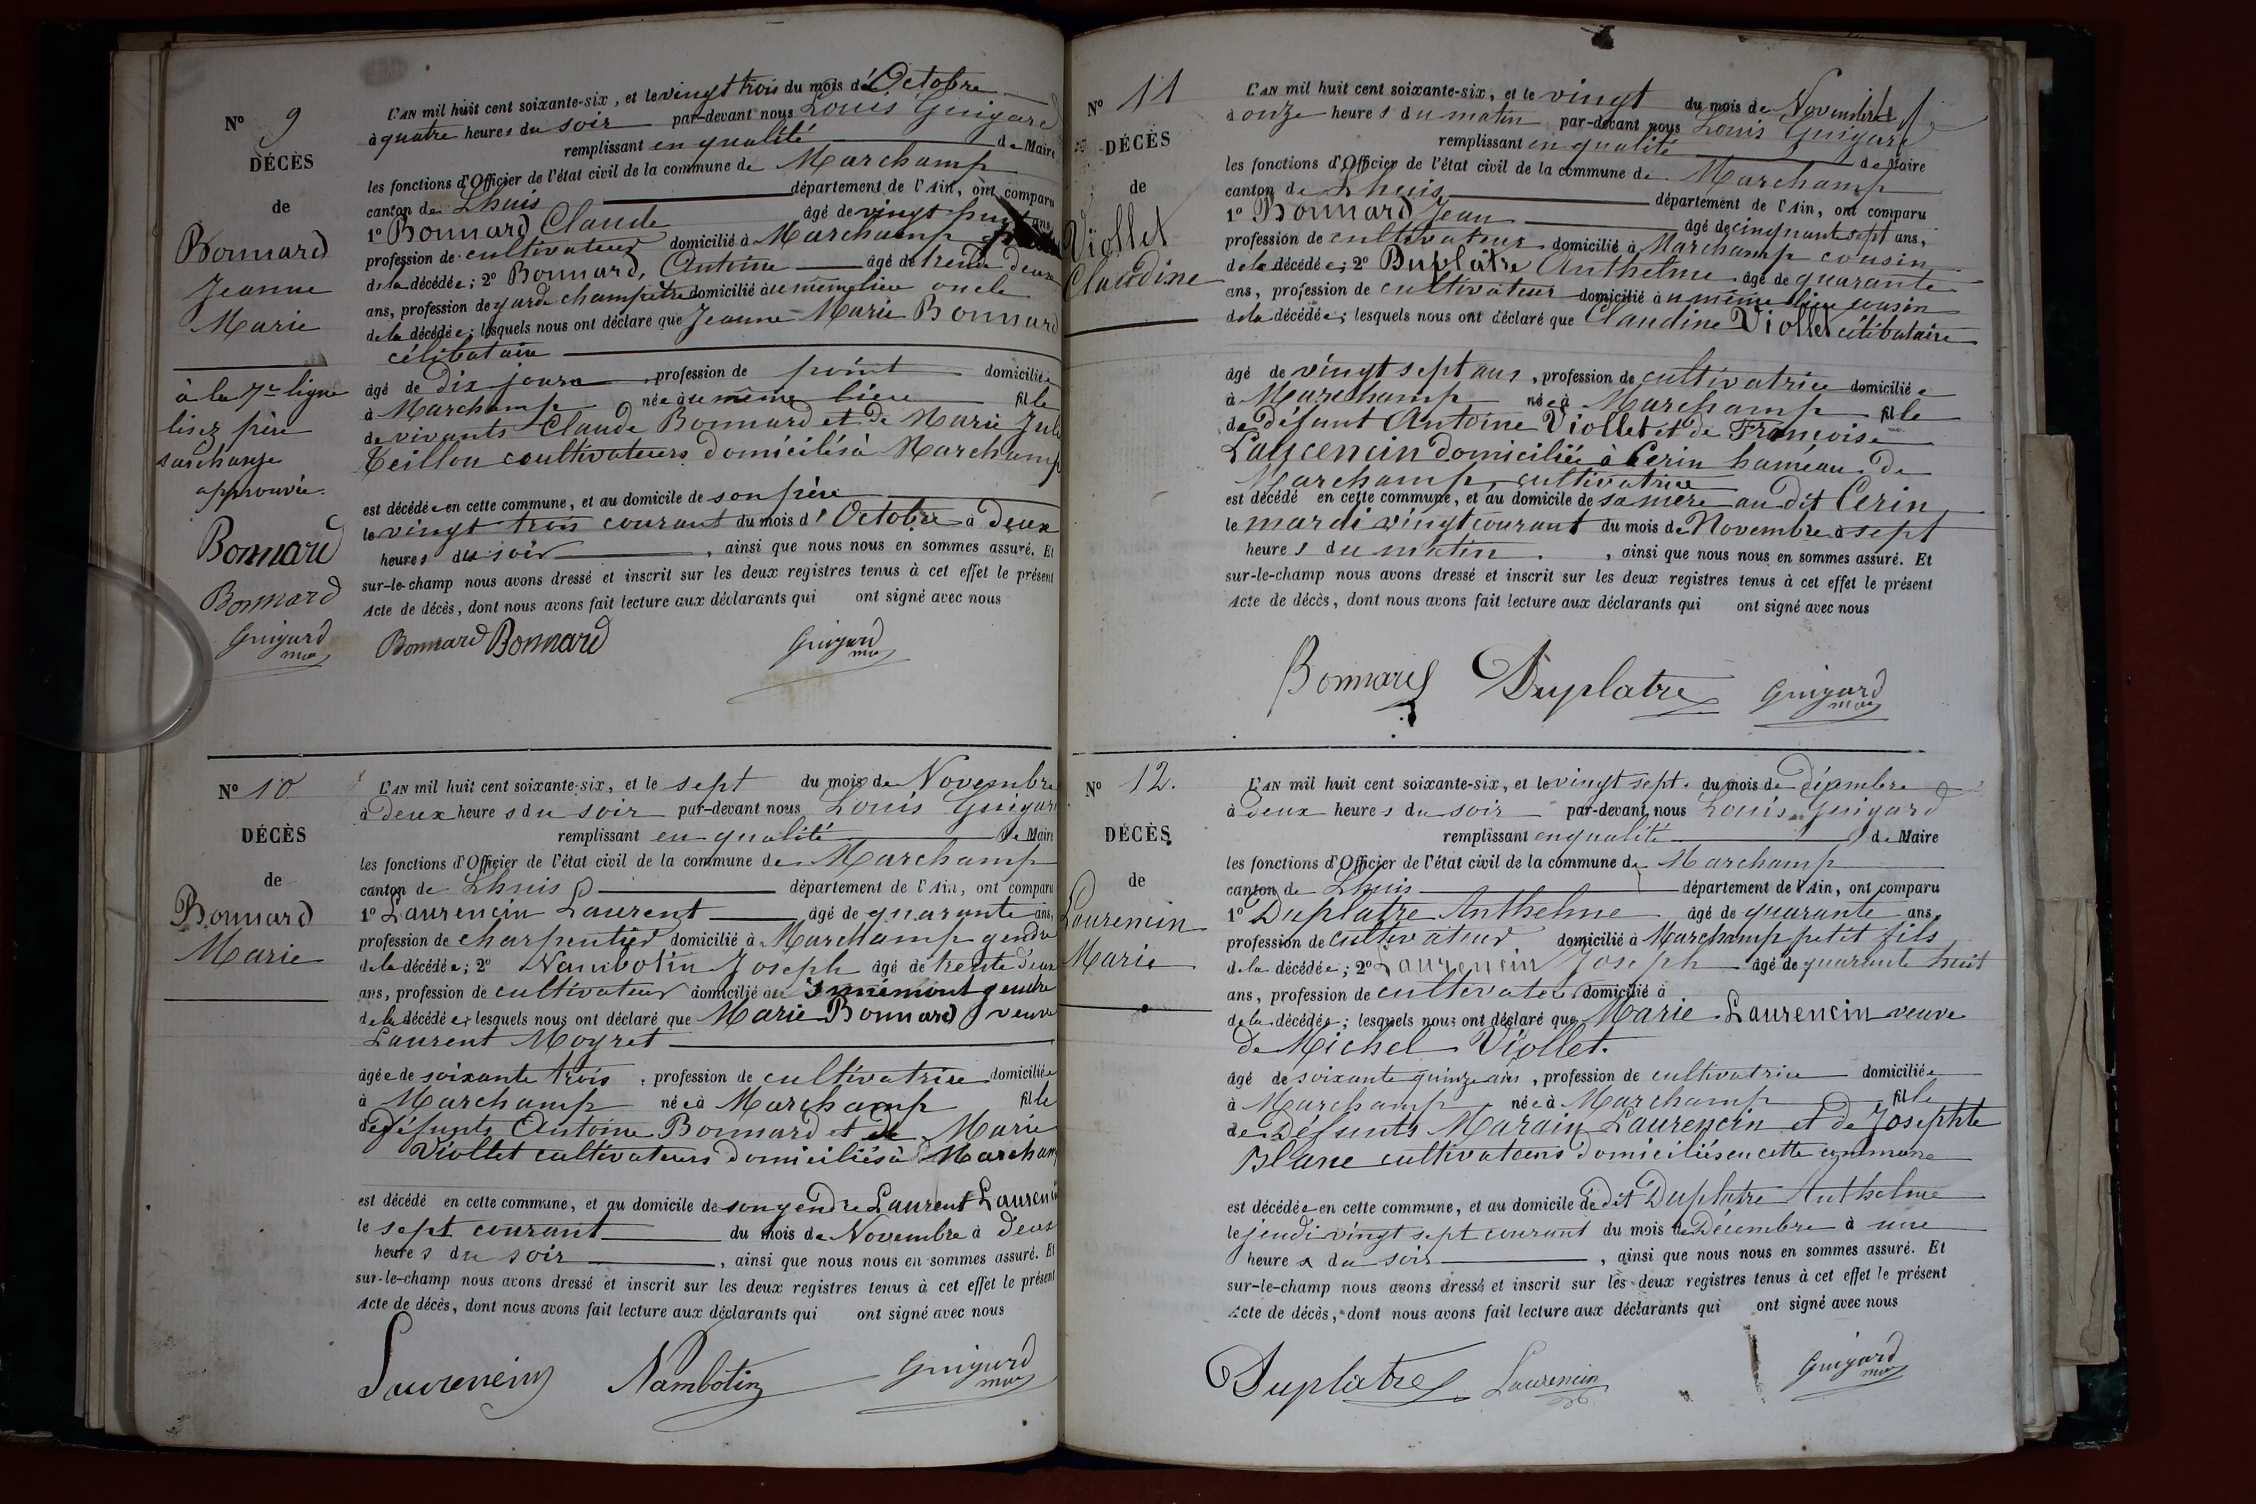 N° 9
DÉCÈS
de
Bonnard
Jeanne
Marie
à la 7e ligne
lisez père
surcharge
approuvée.
Bonnard
Bonnard
Guigard
L'AN mil huit cent soixante-six, et le vingt trois du mois d'Octobre
à quatre heures du soir par-devant nous Louis Guigard
remplissant en qualité de Maire
les fonctions d'Officier de l'état civil de la commune de Marchamp
canton de Lhuis département de l'Ain, ont comparu
1° Bonnard Claude âgé de vingt huit ans,
profession de cultivateur domicilié à Marchamp
de la décédée; 2° Bonnard, Antoine âgé de trente deux
ans, profession de garde champêtre domicilié au même lieu oncle
de la décédée; lesquels nous ont déclaré que Jeanne-Marie Bonnard
célibataire
âgé de dix jours profession de point domiciliée
à Marchamp née au même lieu fille
de vivants Claude Bonnard et de Marie
Teillon coultivateurs domiciliés à Marchamp
est décédée en cette commune, et au domicile de son père
le vingt trois courant du mois d'Octobre à deux
heures du soir, ainsi que nous nous en sommes assuré. Et
sur-le-champ nous avons dressé et inscrit sur les deux registres tenus à cet effet le présent
Acte de décès, dont nous avons fait lecture aux déclarants qui ont signé avec nous
Bonnard Bonnard Guigard
N° 10
DÉCÈS
de
Bonnard
Marie
L'AN mil huit cent soixante-six, et le sept du mois de Novembre
à deux heures du soir par-devant nous Louis Guigard
remplissant en qualité de Maire
les fonctions d'Officier de l'état civil de la commune de Marchamp
canton de Lhuis département de l'Ain, ont comparu
1° Laurencin Laurent âgé de quarante ans,
profession de charpentier domicilié à Marchamp gendre
de la décédée; 2° Nambotin Joseph âgé de trente deux
ans, profession de cultivateur domicilié au gendre
de la décédée; lesquels nous ont déclaré que Marie Bonnard veuve
Laurent Moyret
âgée de soixante trois, profession de cultivatrice domiciliée
à Marchamp née à Marchamp fille
de défunts Antoine Bonnard et de Marie
Viollet cultivateurs domiciliés à Marchamp
est décédé en cette commune, et au domicile de son gendre Laurent Laurencin
le sept courant du mois de Novembre à deux
heures du soir, ainsi que nous nous en sommes assuré. Et
sur-le-champ nous avons dressé et inscrit sur les deux registres tenus à cet effet le présent
Acte de décès, dont nous avons fait lecture aux déclarants qui ont signé avec nous
Laurencin Nambotin Guigard
N° 11
DÉCÈS
de
Viollet
Claudine
L'AN mil huit cent soixante-six, et le vingt du mois de Novembre
à onze heures du matin par-devant nous Louis Guigard
remplissant en qualité de Maire
les fonctions d'Officier de l'état civil de la commune de Marchamp
canton de Lhuis département de l'Ain, ont comparu
1° Bonnard Jean âgé de cinquante sept ans,
profession de cultivateur domicilié à Marchamp cousin
de la décédée; 2° Duplâtre Anthelme âgé de quarante
ans, profession de cultivateur domicilié au même lieu cousin
de la décédée; lesquels nous ont déclaré que Claudine Viollet célibataire
âgé de vingt sept ans, profession de cultivatrice domiciliée
à Marchamp née à Marchamp fille
de défunt Antoine Viollet et de Françoise
Laurencin domiciliée à Cerin haméau de
Marchamp cultivatrice
est décédé en cette commune, et au domicile de sa mère au dit Cerin
le mardi vingt courant du mois de Novembre à sept
heures du matin, ainsi que nous nous en sommes assuré. Et
sur-le-champ nous avons dressé et inscrit sur les deux registres tenus à cet effet le présent
Acte de décès, dont nous avons fait lecture aux déclarants qui ont signé avec nous
Bonnard Duplatre Guigard
N° 12.
DÉCÈS
de
Laurencin
Marie
L'AN mil huit cent soixante-six, et le vingt sept du mois de Décembre
à deux heures du soir par-devant nous Louis Guigard
remplissant en qualité de Maire
les fonctions d'Officier de l'état civil de la commune de Marchamp
canton de Lhuis département de l'Ain, ont comparu
1° Duplatre Anthelme âgé de quarante ans,
profession de cultivateur domicilié à Marchamp petit fils
de la décédée; 2° Laurencin Joseph âgé de quarante huit
ans, profession de cultivateur domicilié à
de la décédée; lesquels nous ont déclaré que Marie Laurencin veuve
de Michel Viollet.
âgé de soixante quinze ans, profession de cultivatrice domiciliée
à Marchamp née à Marchamp fille
de Défunts Marain Laurencin et de Josephte
Blanc cultivateurs domiciliés en cette commune
est décédée en cette commune, et au domicile de dit Duplatre Anthelme
le jeudi vingt sept courant du mois de Décembre à une
heure du soir, ainsi que nous nous en sommes assuré. Et
sur-le-champ nous avons dressé et inscrit sur les deux registres tenus à cet effet le présent
Acte de décès, dont nous avons fait lecture aux déclarants qui ont signé avec nous
Duplatre Laurencin Guigard